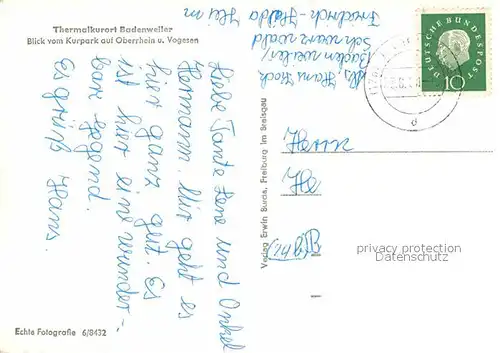 Thermalkurort Badenweiler
Blick vom Kurpark auf Oberrhein u. Vogesen
Liebe Tante Lene und Onkel
Hermann. Mir geht es
hier ganz gut. Es
ist hier ein wunder-
bare Gegend.
Es grüßt Hans.
Echte Fotografie 6/8432
Verlag Erwin Burda, Freiburg im Breisgau
Abs. Hans
Badenweiler/
Schwarzwald
Friedrich-Hilda Heim
DEUTSCHE BUNDESPOST
10
d
Herrn
He
privacy protection
Datenschutz